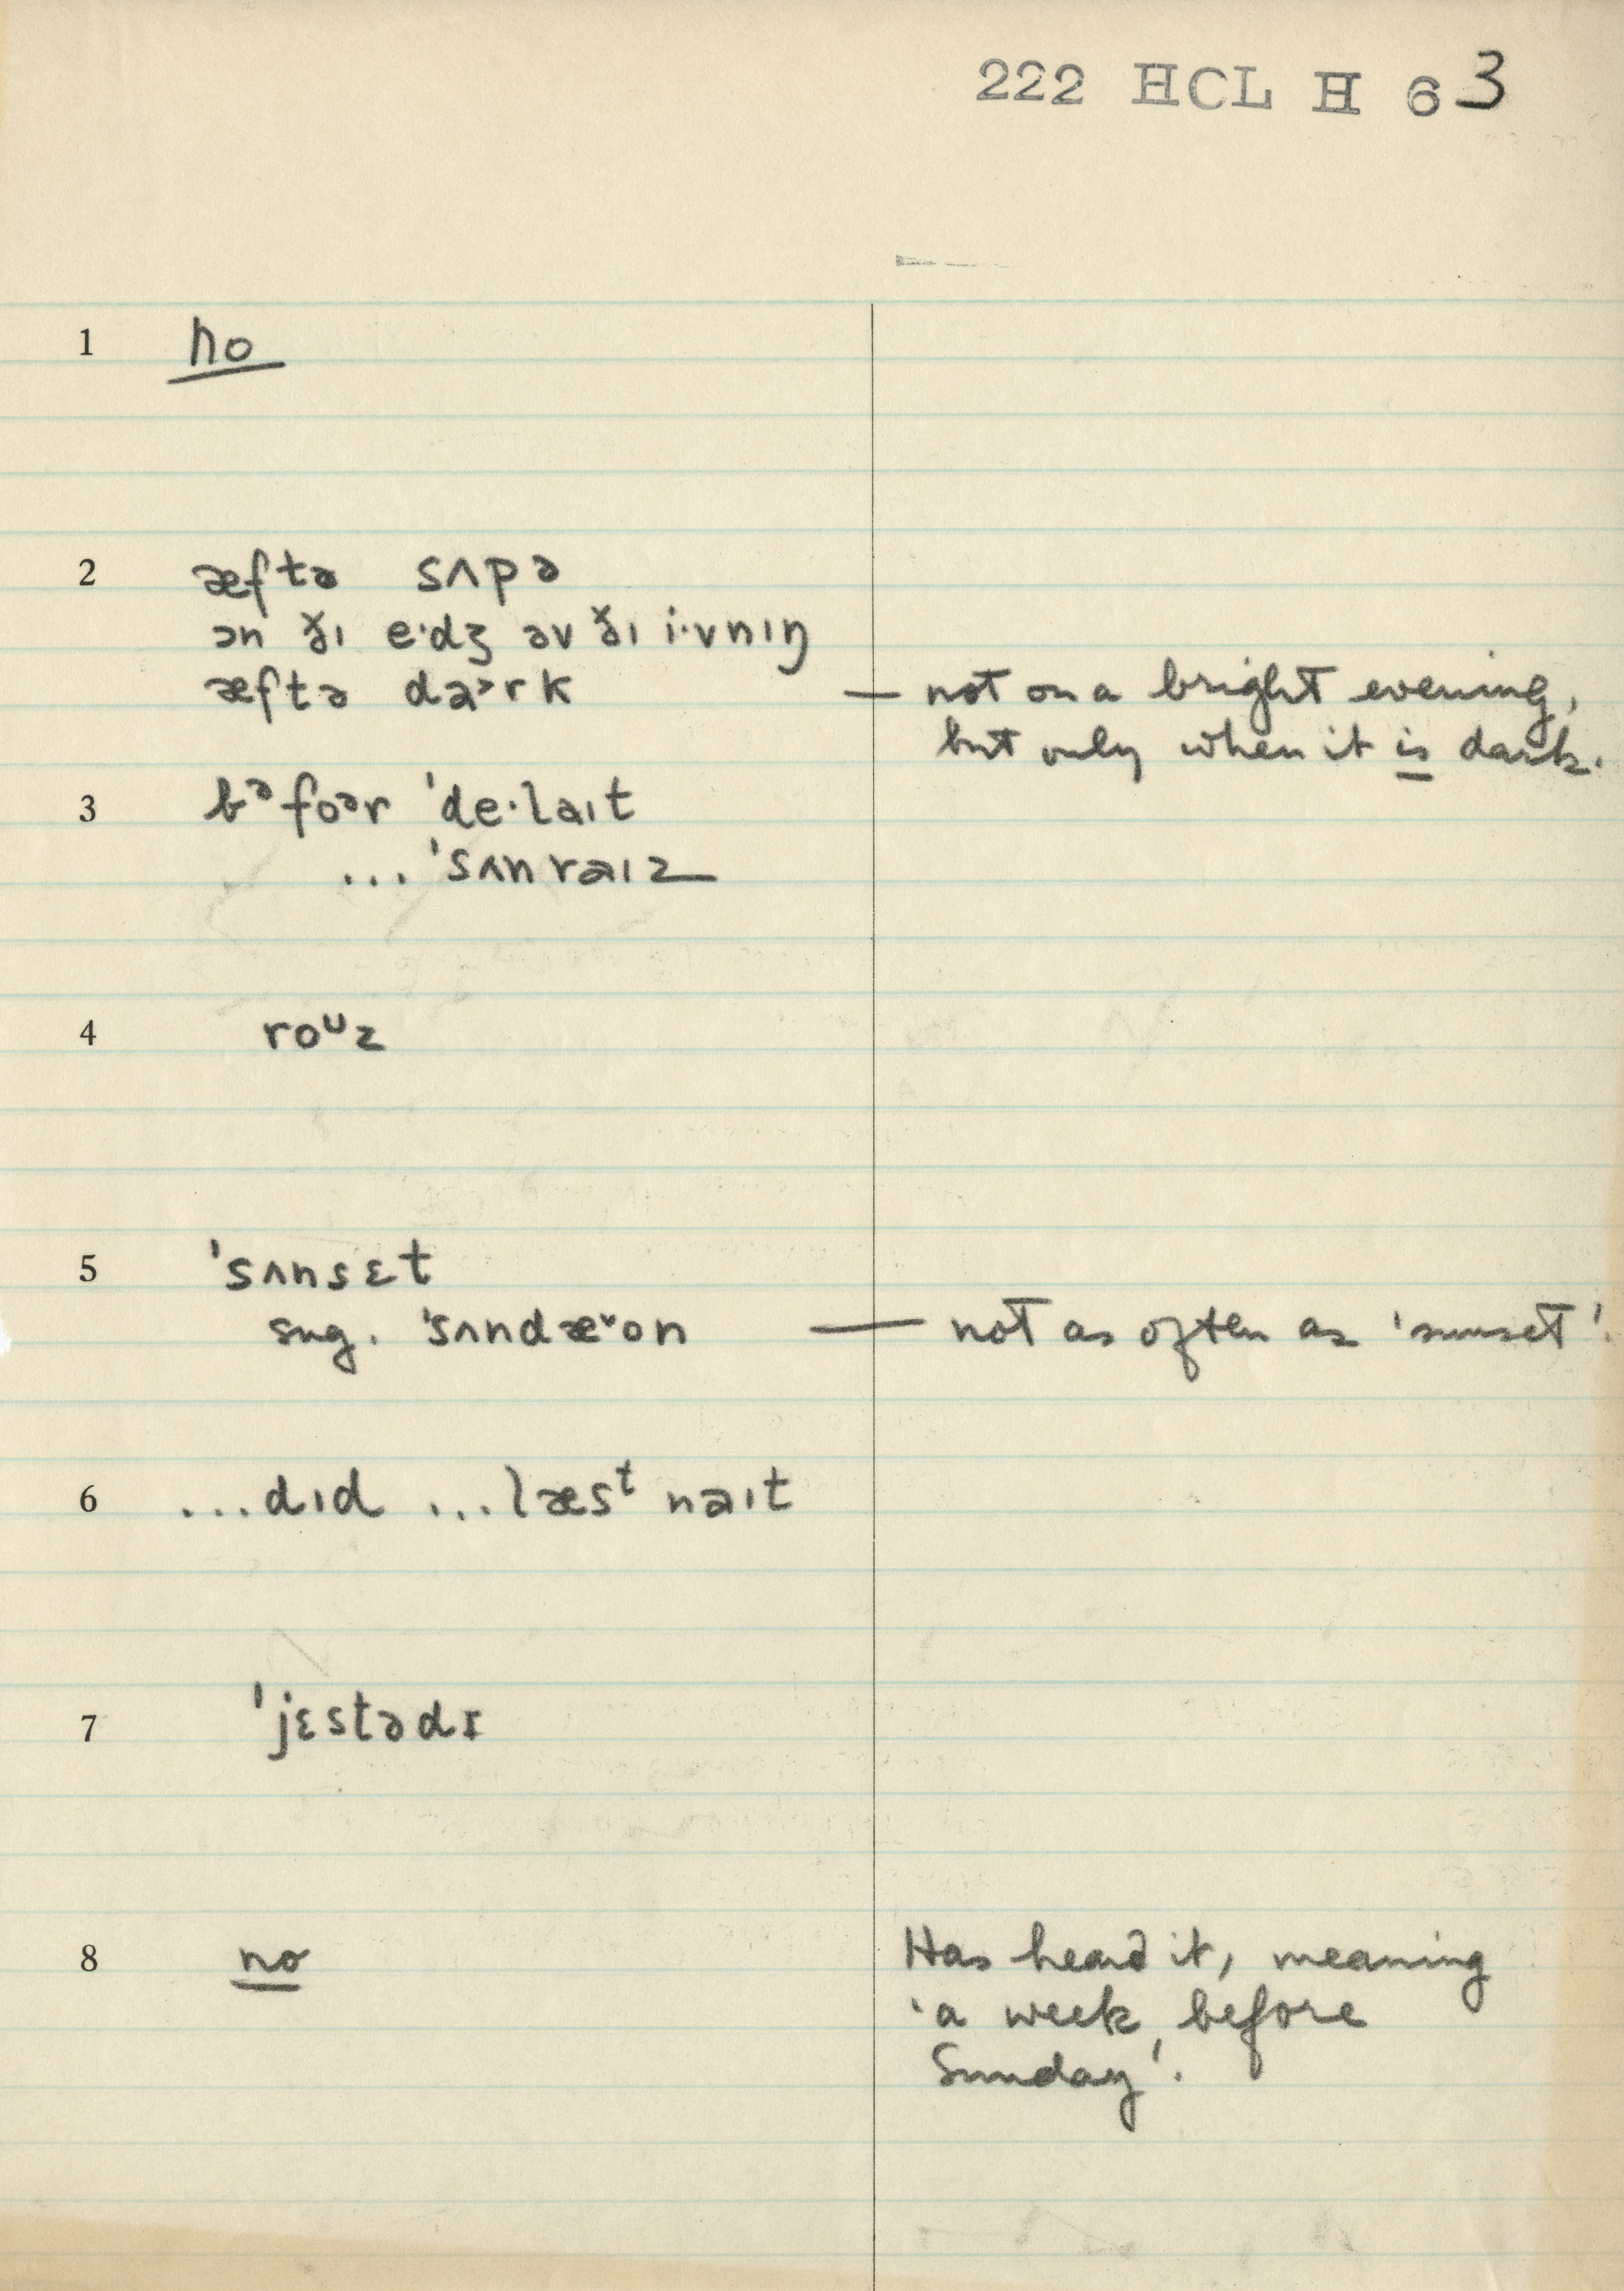 222 HCL H 63
1 no
2 æftə sʌpə
ən ð̌ɪ e·dʒ əv ð̌ɪ i·vnɪŋ
æftə da˃rk — not on a bright evening,
but only when it is dark.
3 bᵊfoᵊr 'de·laɪt
... 'sʌnraɪz
4 roᶸz
5 'sʌnsɛt
sug. 'sʌndæ˅on — not as often as 'sunset'.
6 ...dɪd ...læsᵗ naɪt
7 'jɛstədɪ
8 no Has heard it, meaning
'a week before
Sunday'.